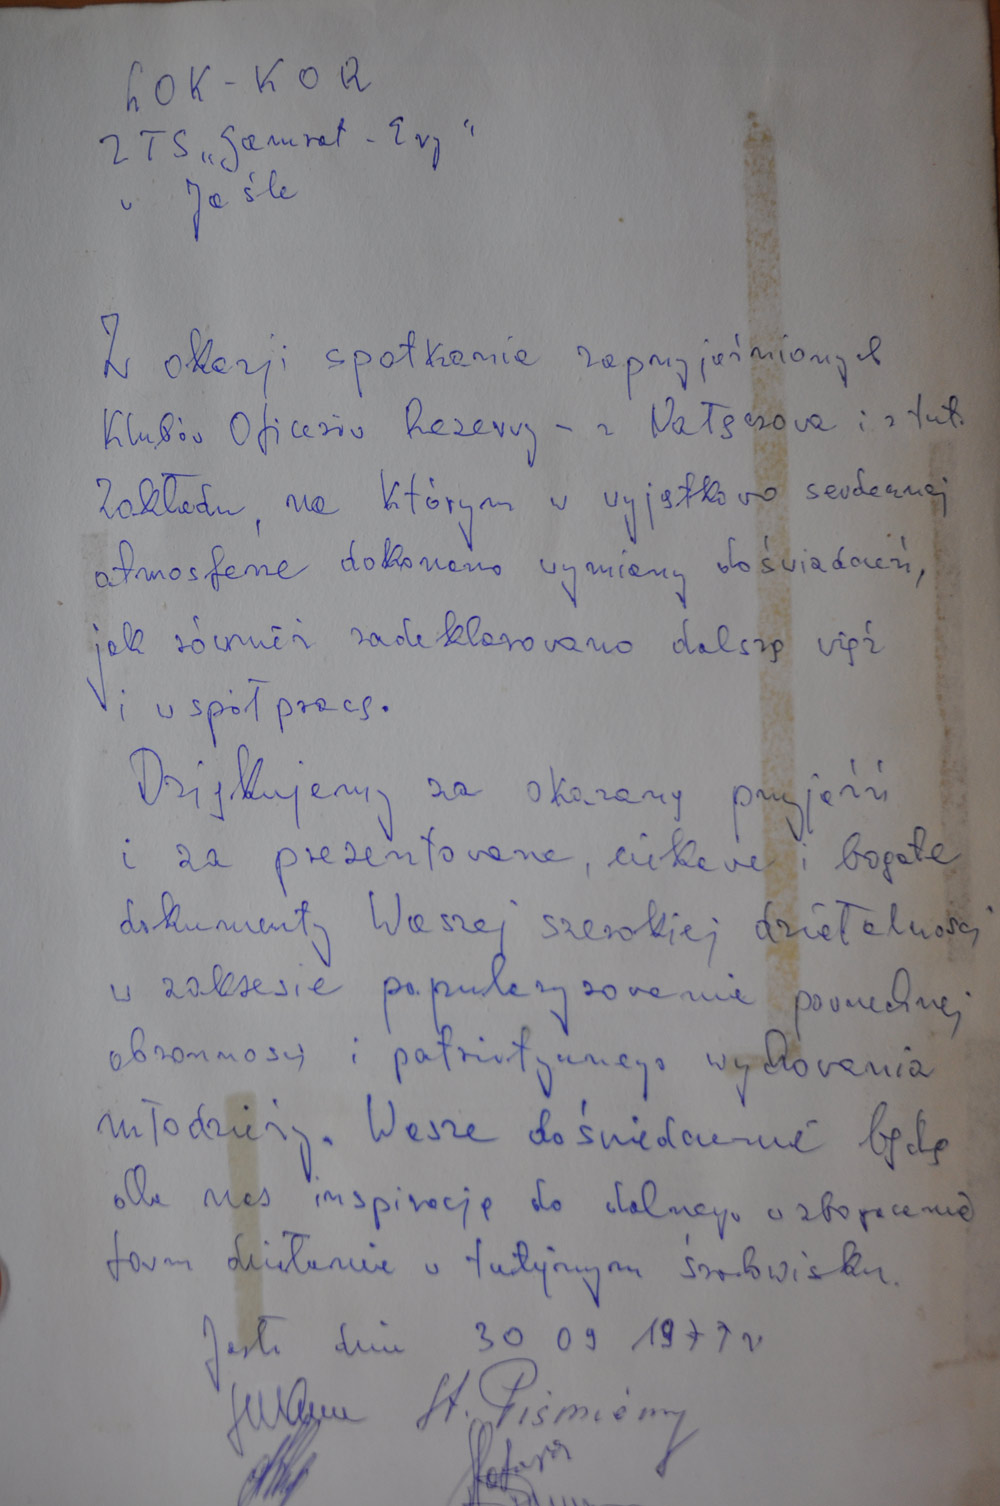 ŁOK-KOR
ZTS „Gamrat-Erg"
w Jaśle
Z okazji spotkania zaprzyjaźnionych
Klubów Oficerów Rezerwy - z Nałęczowa i z tut.
Zakładu, na którym w wyjątkowo serdecznej
atmosferze dokonano wymiany doświadczeń,
jak również zadeklarowano dalszą więź
i współpracę.
Dziękujemy za okazaną przyjaźń
i za prezentowane, ciekawe i bogate
dokumenty Waszej szerokiej działalności
w zakresie popularyzowania powszechnej
obronności i patriotycznego wychowania
młodzieży. Wasze doświadczenie będą
dla nas inspiracją do dalszego wzbogacenia
form działania w tutejszym środowisku.
Jasło dnia 30 09 1977 r
St. Piśmienny